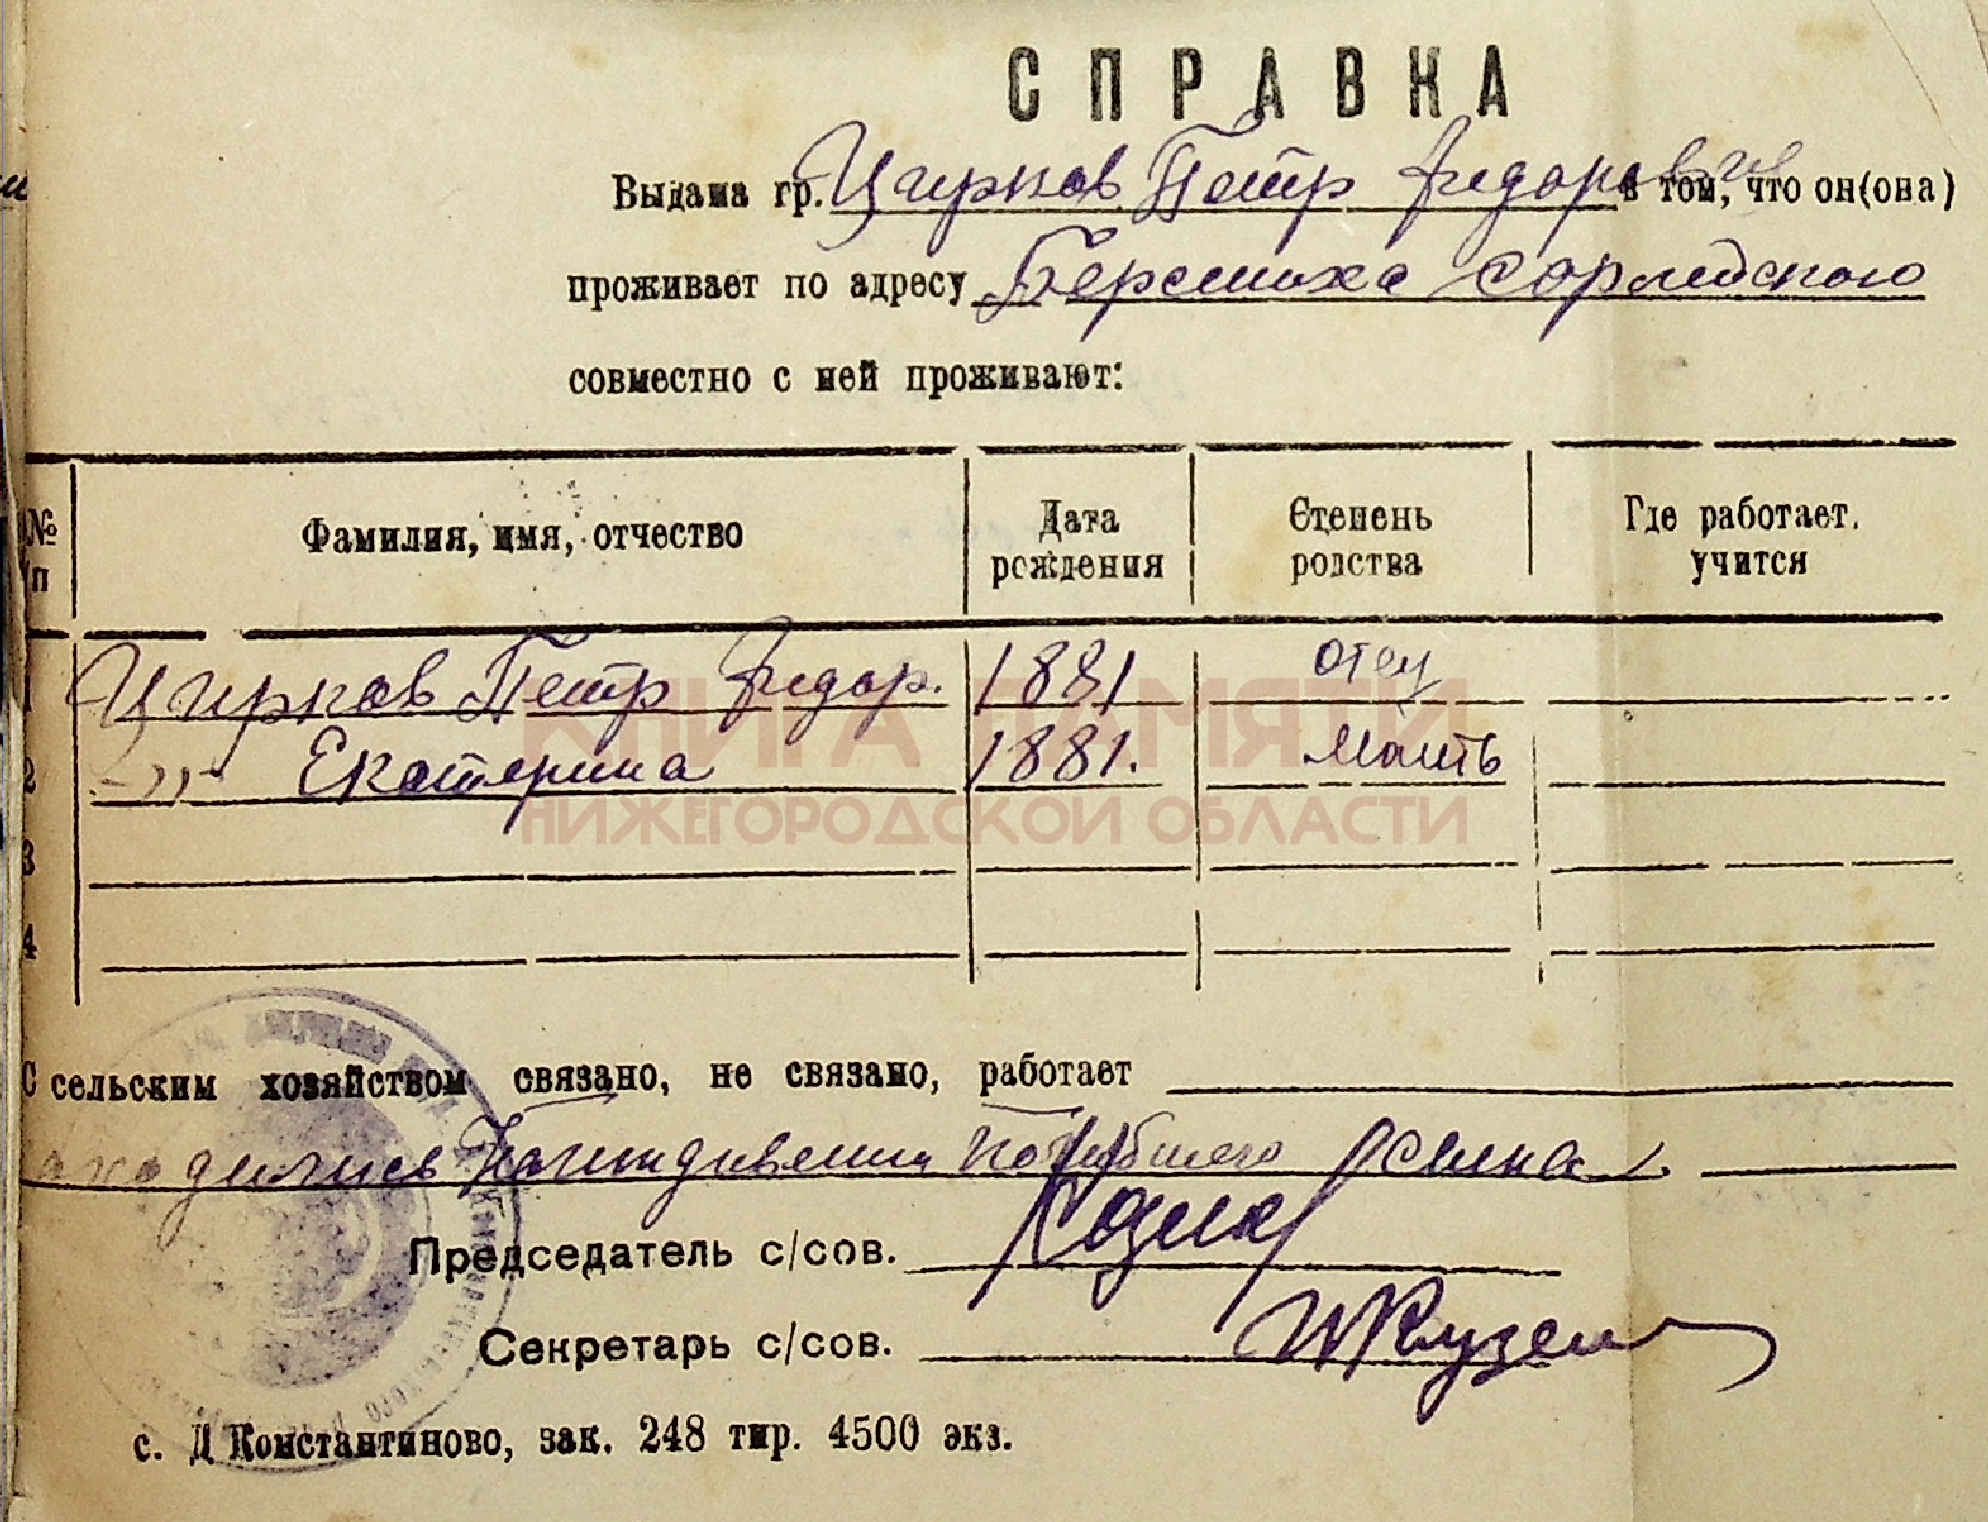 СПРАВКА
Выдана гр. Цирков Петр Федорович в том, что он(она)
проживает по адресу Берсимиха Сормовского
совместно с ней проживают:
№ п Фамилия, имя, отчество Дата рождения Степень родства Где работает. учится
1 Цирков Петр Федор. 1881 отец
2 -"- Екатерина 1881. Мать
3
4
КНИГА ПАМЯТИ
НИЖЕГОРОДСКОЙ ОБЛАСТИ
С сельским хозяйством связано, не связано, работает
погибшего
Председатель с/сов.
Секретарь с/сов.
с. Д Константиново, зак. 248 тир. 4500 экз.